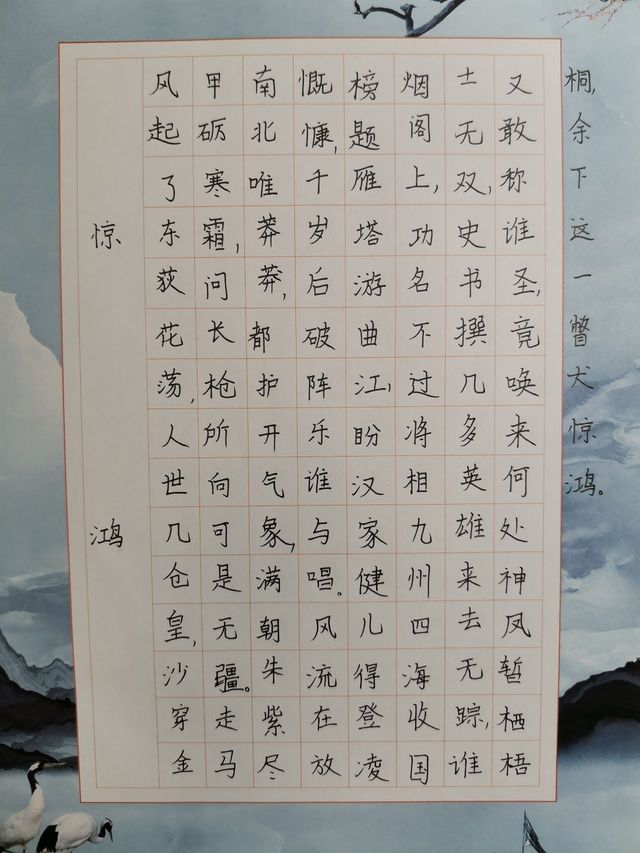 惊鸿
风起了东荻花荡,人世几仓皇,沙穿金
甲砺寒霜,问长枪所向可是无疆。走马
南北唯莽莽,都护开气象,满朝朱紫尽
慨慷,千岁后破阵乐谁与唱。风流在放
榜题雁塔游曲江,盼汉家健儿得登凌
烟阁上,功名不过将相九州四海收国
士无双,史书撰几多英雄来去无踪,谁
又敢称谁圣,竟唤来何处神凤暂栖梧
桐,余下这一瞥犬惊鸿。